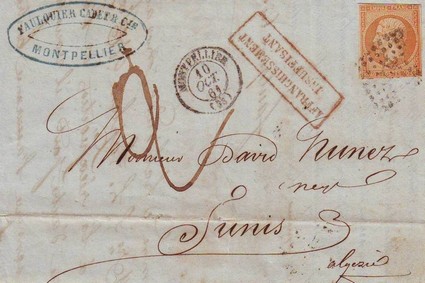 FAULQUIER CADET & Cie
MONTPELLIER
MONTPELLIER
10
OCT.
61
(33)
AFFRANCHISSEMENT
INSUFFISANT
2
Monsieur David Nunez
neg
Tunis
algerie